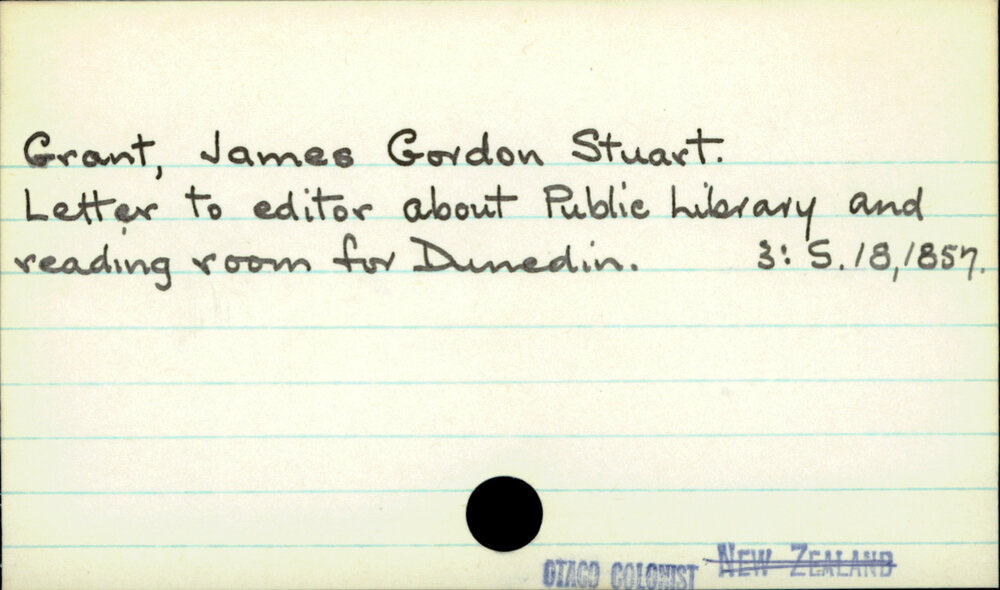 Grant, James Gordon Stuart.
Letter to editor about Public Library and
reading room for Dunedin. 3: S. 18, 1857.
OTAGO COLONIST NEW ZEALAND